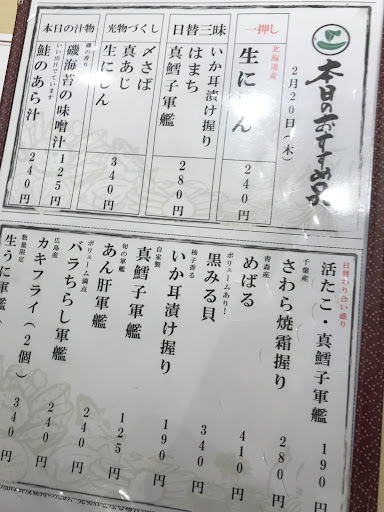 本日のおすすめ品
2月20日(木)
一押し
北海道産
生にしん
240円
日替三昧
いか耳漬け握り
はまち
真鱈子軍艦
280円
光物づくし
〆さば
真あじ
生にしん
340円
本日の汁物
磯の香り
磯海苔の味噌汁
125円
いい出汁でています
鮭のあら汁
240円
日替わり合い盛り
活たこ・真鱈子軍艦
190円
千葉産
さわら焼霜握り
280円
青森産
めばる
410円
ボリュームあり!
黒みる貝
340円
柚子香る
いか耳漬け握り
190円
自家製
真鱈子軍艦
125円
旬の軍艦
あん肝軍艦
240円
ボリューム満点
バラちらし軍艦
240円
広島産
カキフライ(2個)
240円
数量限定
生うに軍艦
340円